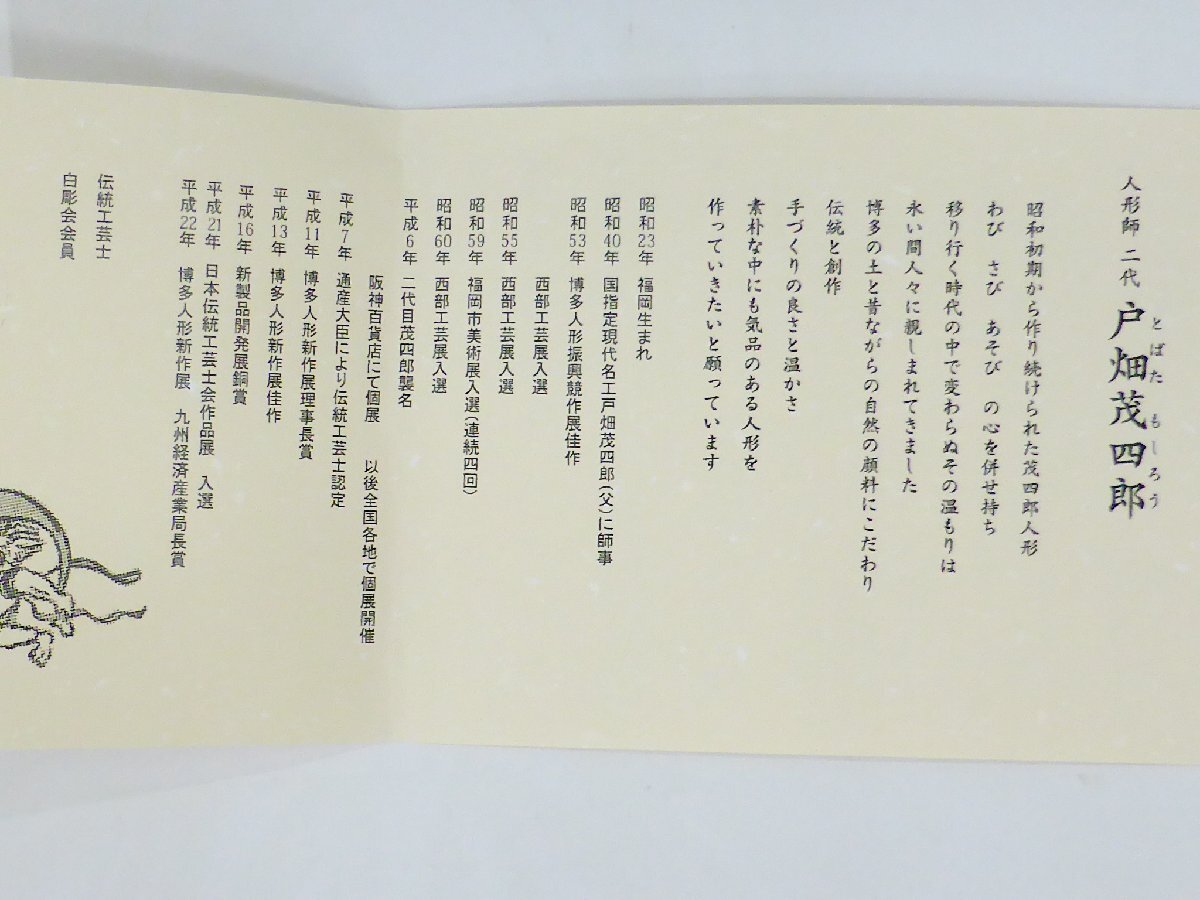 人形師 二代 戸畑茂四郎
とばた もしろう
昭和初期から作り続けられた茂四郎人形
わび さび あそび の心を併せ持ち
移り行く時代の中で変わらぬその温もりは
永い間人々に親しまれてきました
博多の土と昔ながらの自然の顔料にこだわり
伝統と創作
手づくりの良さと温かさ
素朴な中にも気品のある人形を
作っていきたいと願っています
昭和23年 福岡生まれ
昭和40年 国指定現代名工戸畑茂四郎(父)に師事
昭和53年 博多人形振興競作展佳作
西部工芸展入選
昭和55年 西部工芸展入選
昭和59年 福岡市美術展入選(連続四回)
昭和60年 西部工芸展入選
平成6年 二代目茂四郎襲名
阪神百貨店にて個展 以後全国各地で個展開催
平成7年 通産大臣により伝統工芸士認定
平成11年 博多人形新作展理事長賞
平成13年 博多人形新作展佳作
平成16年 新製品開発展銅賞
平成21年 日本伝統工芸士会作品展 入選
平成22年 博多人形新作展 九州経済産業局長賞
伝統工芸士
白彫会会員